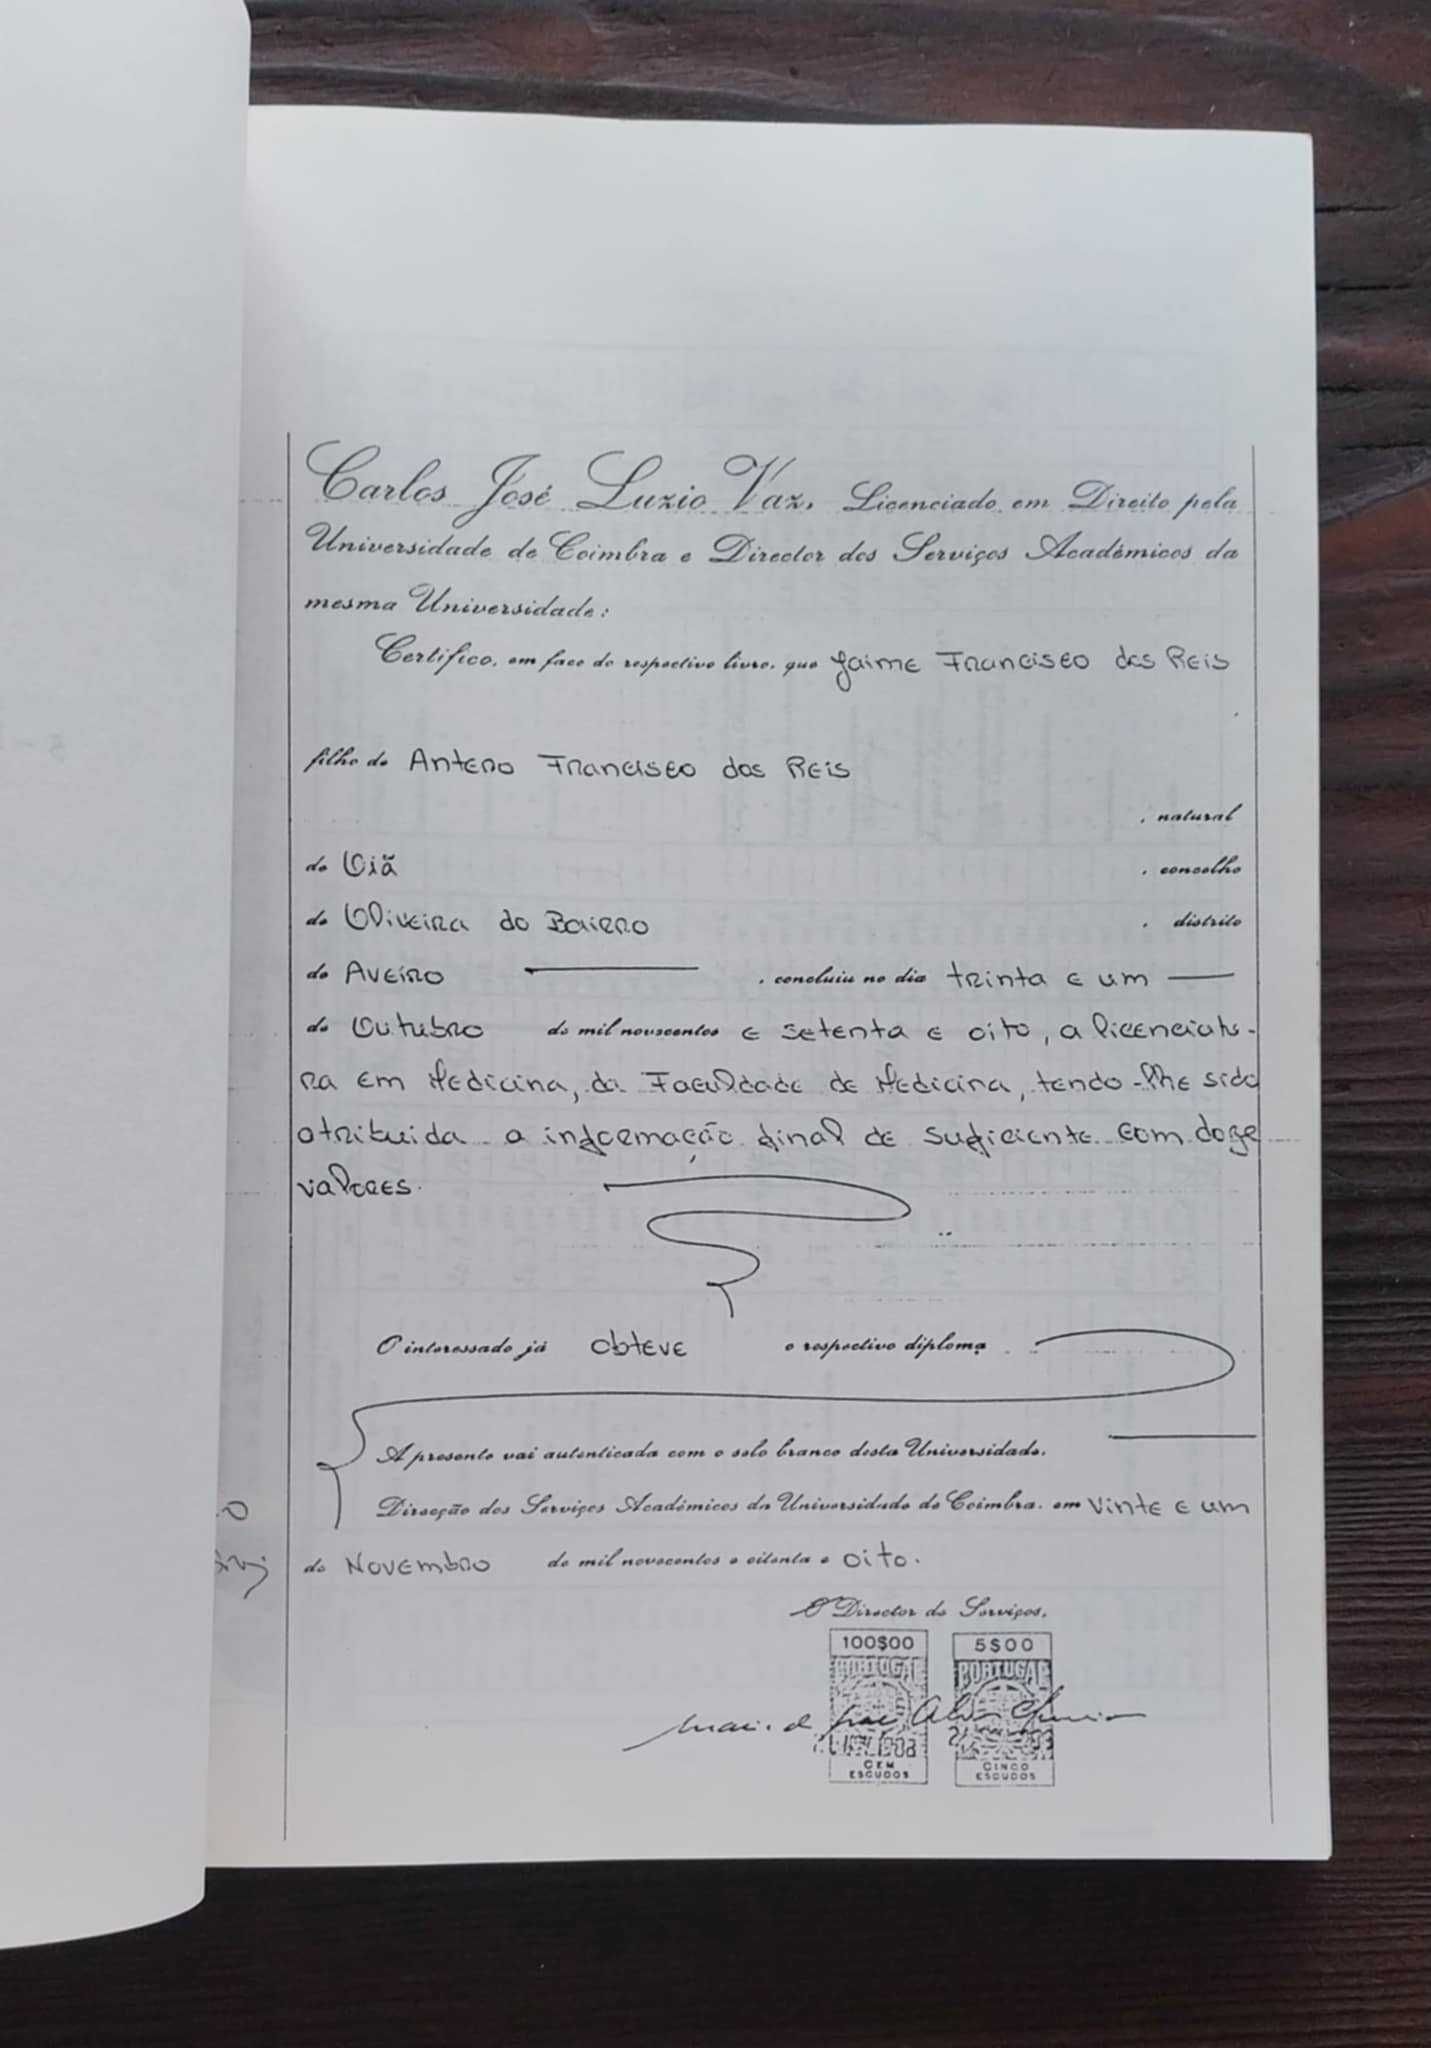 Carlos José Luzio Vaz, Licenciado em Direito pela
Universidade de Coimbra e Director dos Serviços Académicos da
mesma Universidade:
Certifico, em face do respectivo livro, que Jaime Francisco dos Reis
filho de Antero Francisco dos Reis
, natural
de Oiã , concelho
de Oliveira do Bairro , distrito
de Aveiro , concluiu no dia trinta e um
de Outubro de mil novecentos e setenta e oito, a licenciatu-
ra em Medicina, da Faculdade de Medicina, tendo-lhe sido
atribuida a informação final de suficiente com doze
valores.
O interessado já obteve o respectivo diploma
A presente vai autenticada com o selo branco desta Universidade.
Direcção dos Serviços Académicos da Universidade de Coimbra, em vinte e um
de Novembro de mil novecentos e oitenta e oito.
O Director de Serviços,
100$00 5$00
PORTUGAL PORTUGAL
CEM ESCUDOS CINCO ESCUDOS